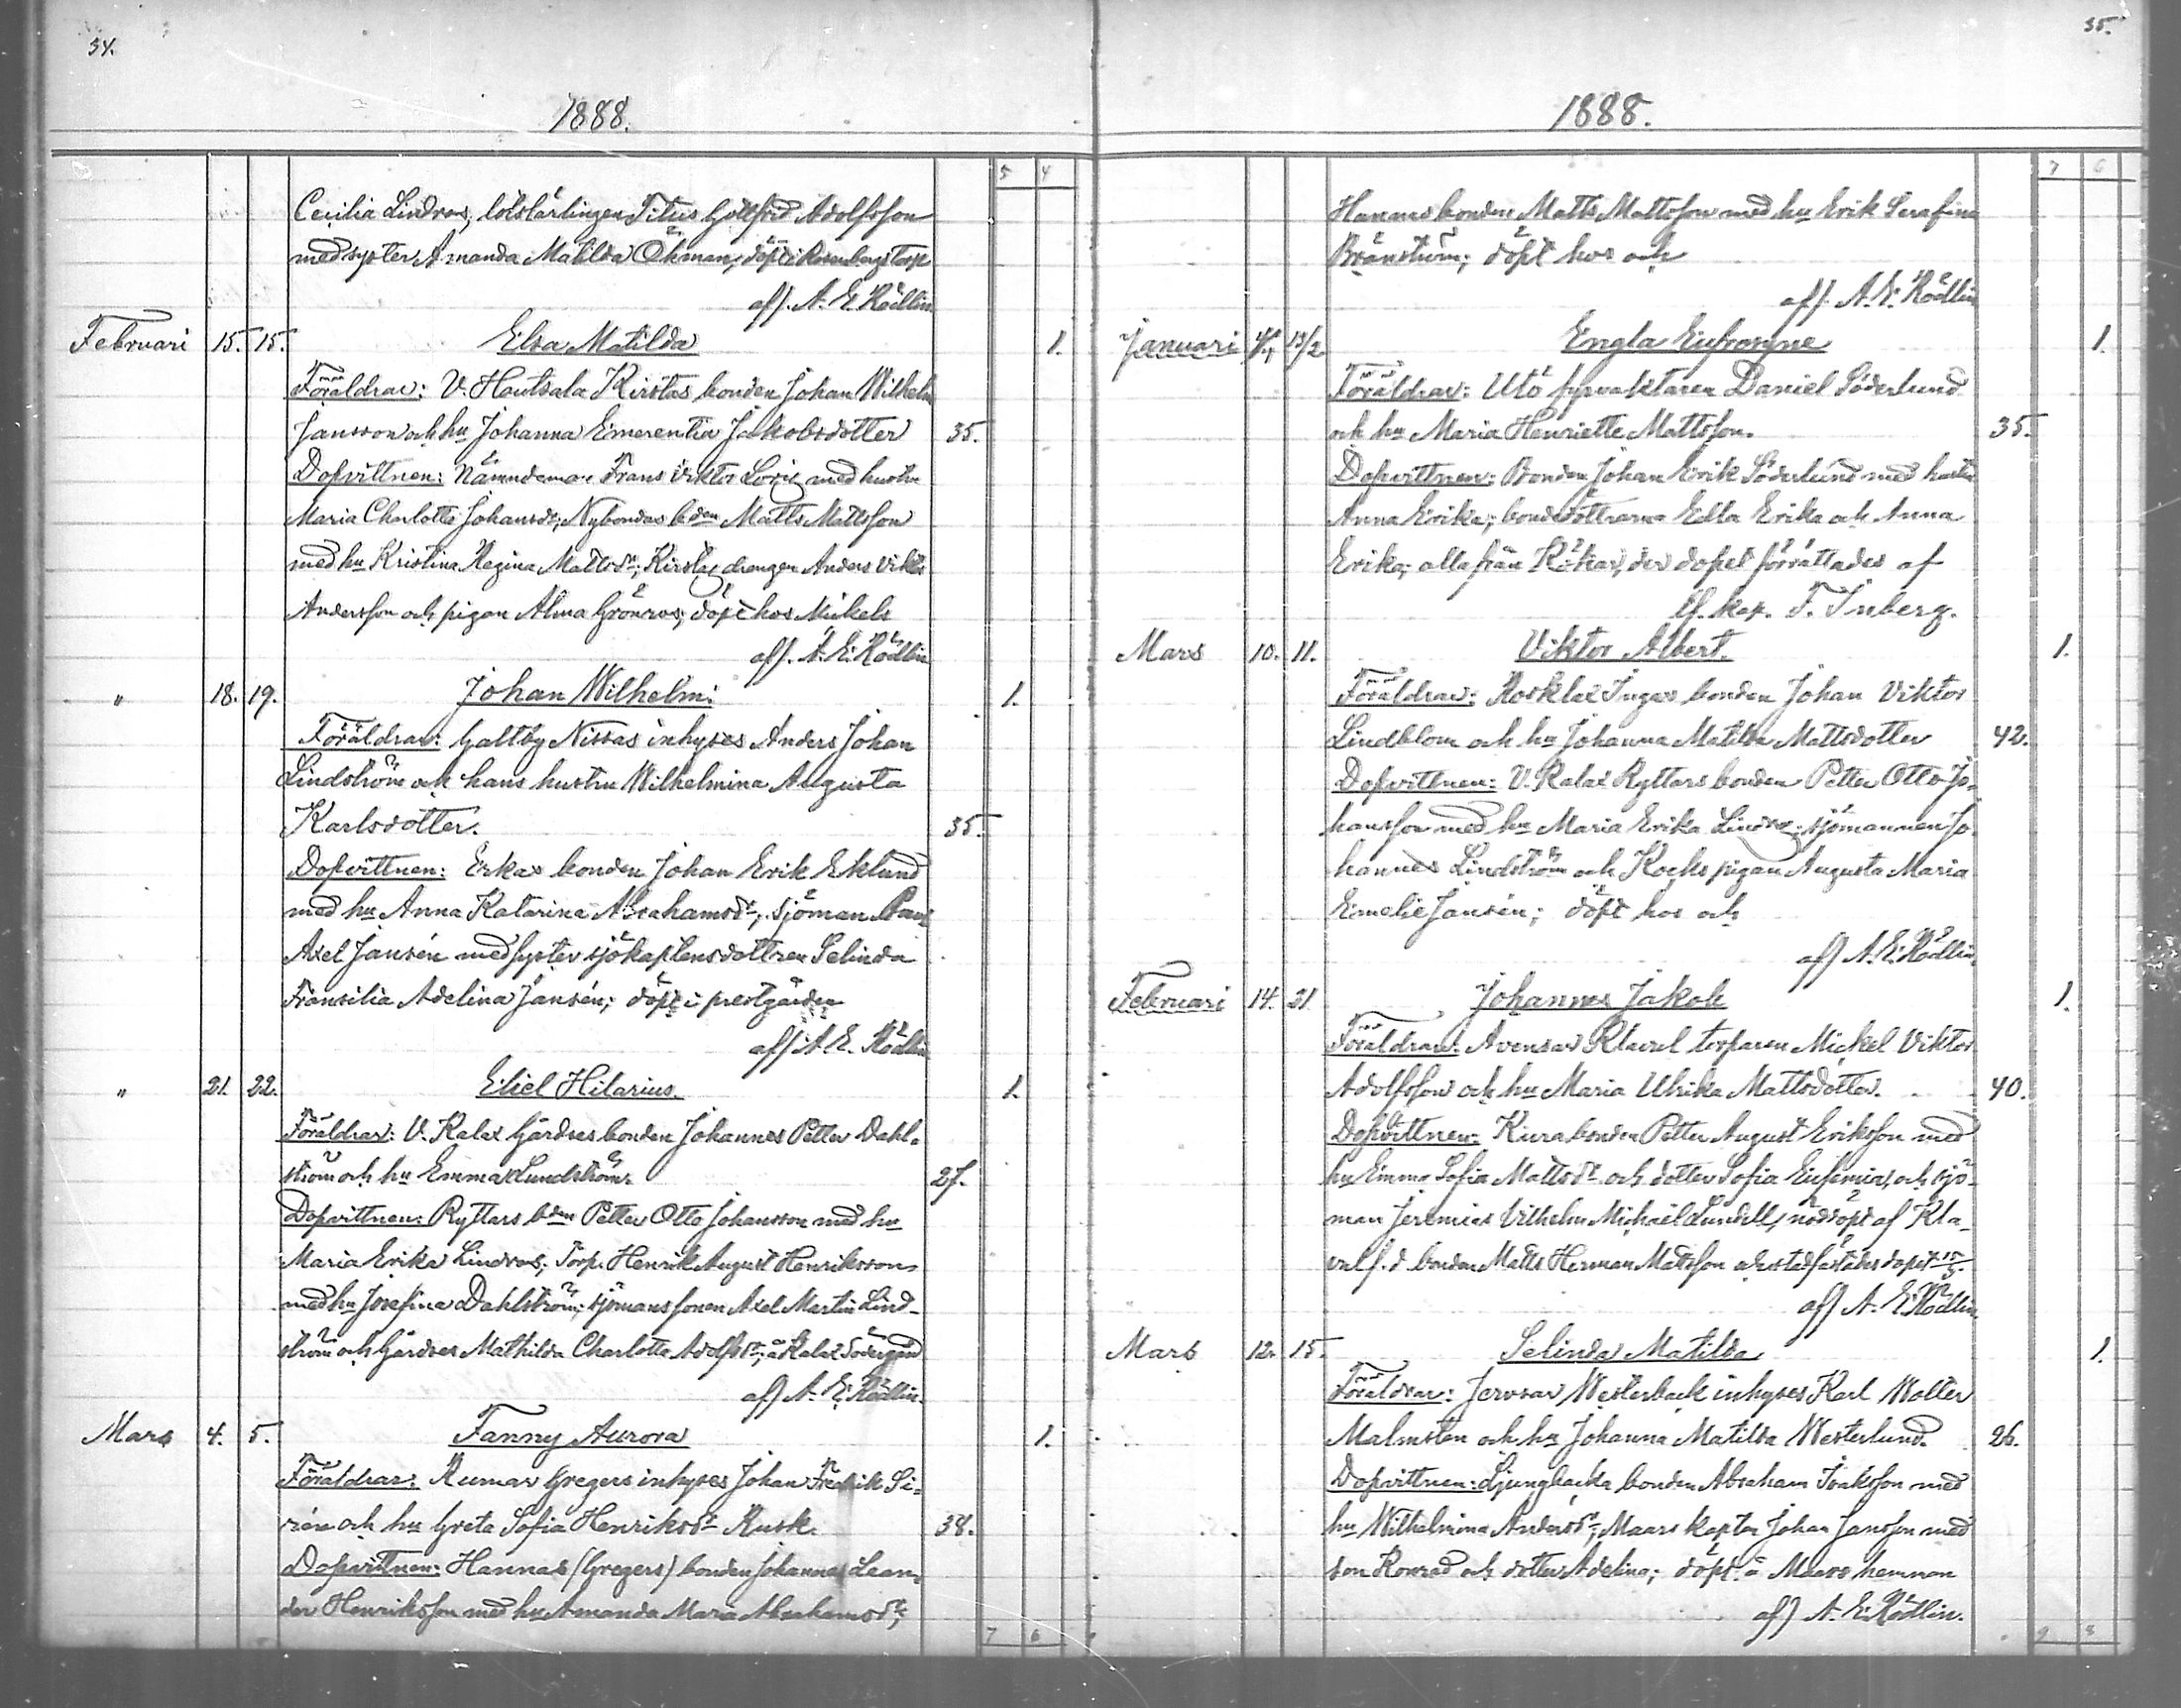 34.
1888.
5 4
Cecilia Lindroos, lotslärlingen Titus Gottfrid Adolfsson
med syster Amanda Matilda Öhman; döpt i Rosenbergs torp
af/. A. E. Rödlin
Februari 15. 15. Elsa Matilda 1.
Föräldrar: V. Houtsala Kirstas bonden Johan Wilhelm
Jansson och hu Johanna Emerentia Jakobsdotter 35.
Dopvittnen: Nämndeman Frans Viktor med hustru
Maria Charlotta Johansdr; Nybondas bden Matts Mattsson
med hu Kristina Regina Mattsdr; Kirstas drengen Anders Viktor
Andersson och pigan Alma Grönroos; döpt hos Mickels
af/. A. E. Rödlin
" 18. 19. Johan Wilhelm. 1.
Föräldrar: Galtby Nissas inhyses Anders Johan
Lindström och hans hustru Wilhelmina Augusta
Karlsdotter. 35.
Dopvittnen: Erkas bonden Johan Erik Eklund
med hu Anna Katarina Abrahamsdr; sjöman Paul
Axel Jansén med syster sjökaptensdottren Selinda
Fransilia Adelina Jansén; döpt i prestgården
af/. A. E. Rödlin
" 21. 22. Eliel Hilarius. 1.
Föräldrar: V. Kalax Gårdses bonden Johannes Petter Dahl-
ström och hu Emma Lundström. 27.
Dopvittnen: Ryttars bden Petter Otto Johansson med hu
Maria Erika Lindroos; Torp. Henrik August Henriksson
med hu Josefina Dahlström; sjömanssonen Axel Martin Lind-
ström och Gårdses Mathilda Charlotta Adolfsdr; å Kalax Södergård
af) A. E. Rödlin.
Mars 4. 5. Fanny Aurora 1.
Föräldrar: Rumar Gregers inhyses Johan Fredrik Si-
rén och hu Greta Sofia Henriksdr Rusk. 38.
Dopvittnen: Hannas (Gregers) bonden Johannes Lean-
der Henriksson med hu Amanda Maria Abrahamsdr;
7 6
35.
1888.
7 6
Hannas bonden Matts Mattsson med hu Erik Serafina
Brännström; döpt hos och
af/. A. E. Rödlin
Januari 13/2 Engla Eufrosyne 1.
Föräldrar: Utö fyrvaktaren Daniel Söderlund
och hu Maria Henriette Mattsson. 35.
Dopvittnen: Bonden Johan Erik Söderlund med hustru
Anna Erika; bondedöttrarna Edla Erika och Anna
Erika; alla från Kökar, der dopet förrättades af
kap. F. Inberg.
Mars 10. 11. Viktor Albert. 1.
Föräldrar: Rosklax Ingas bonden Johan Viktor
Lindblom och hu Johanna Matilda Mattsdotter 42.
Dopvittnen: V. Kalax Ryttars bonden Petter Otto Jo-
hansson med hu Maria Erika Lindroos; sjömannen Jo-
hannes Lindström och Kocks pigan Augusta Maria
Emelie Jansén; döpt hos och
af) A. E. Rödlin.
Februari 14. 21. Johannes Jakob 1.
Föräldrar: Avensar Klavel torparen Mickel Viktor
Adolfsson och hu Maria Ulrika Mattsdotter. 40.
Dopvittnen: Kura bonden Petter August Eriksson med
hu Emma Sofia Mattsdr och dotter Sofia Eufemia, och sjö-
man Jeremias Vilhelm Michael Lundell; nöddöpt af Kla-
val f.d bonden Matts Herman Mattsson och stadfästades dopet
af) A. E. Rödlin.
Mars 12. 15. Selinda Matilda 1.
Föräldrar: Jervsar Westerback inhyses Karl Walter
Malmsten och hu Johanna Matilda Westerlund. 26.
Dopvittnen: Ljungbacka bonden Abraham Isaksson med
hu Wilhelmina Andersdr; Maars kapten Johan Jansson med
son Konrad och dotter Adelina; döpt å Maars hemman
af) A. E. Rödlin.
9 8